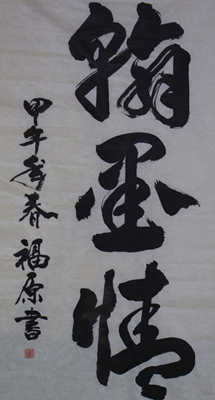 翰墨情
甲午年春
福原書